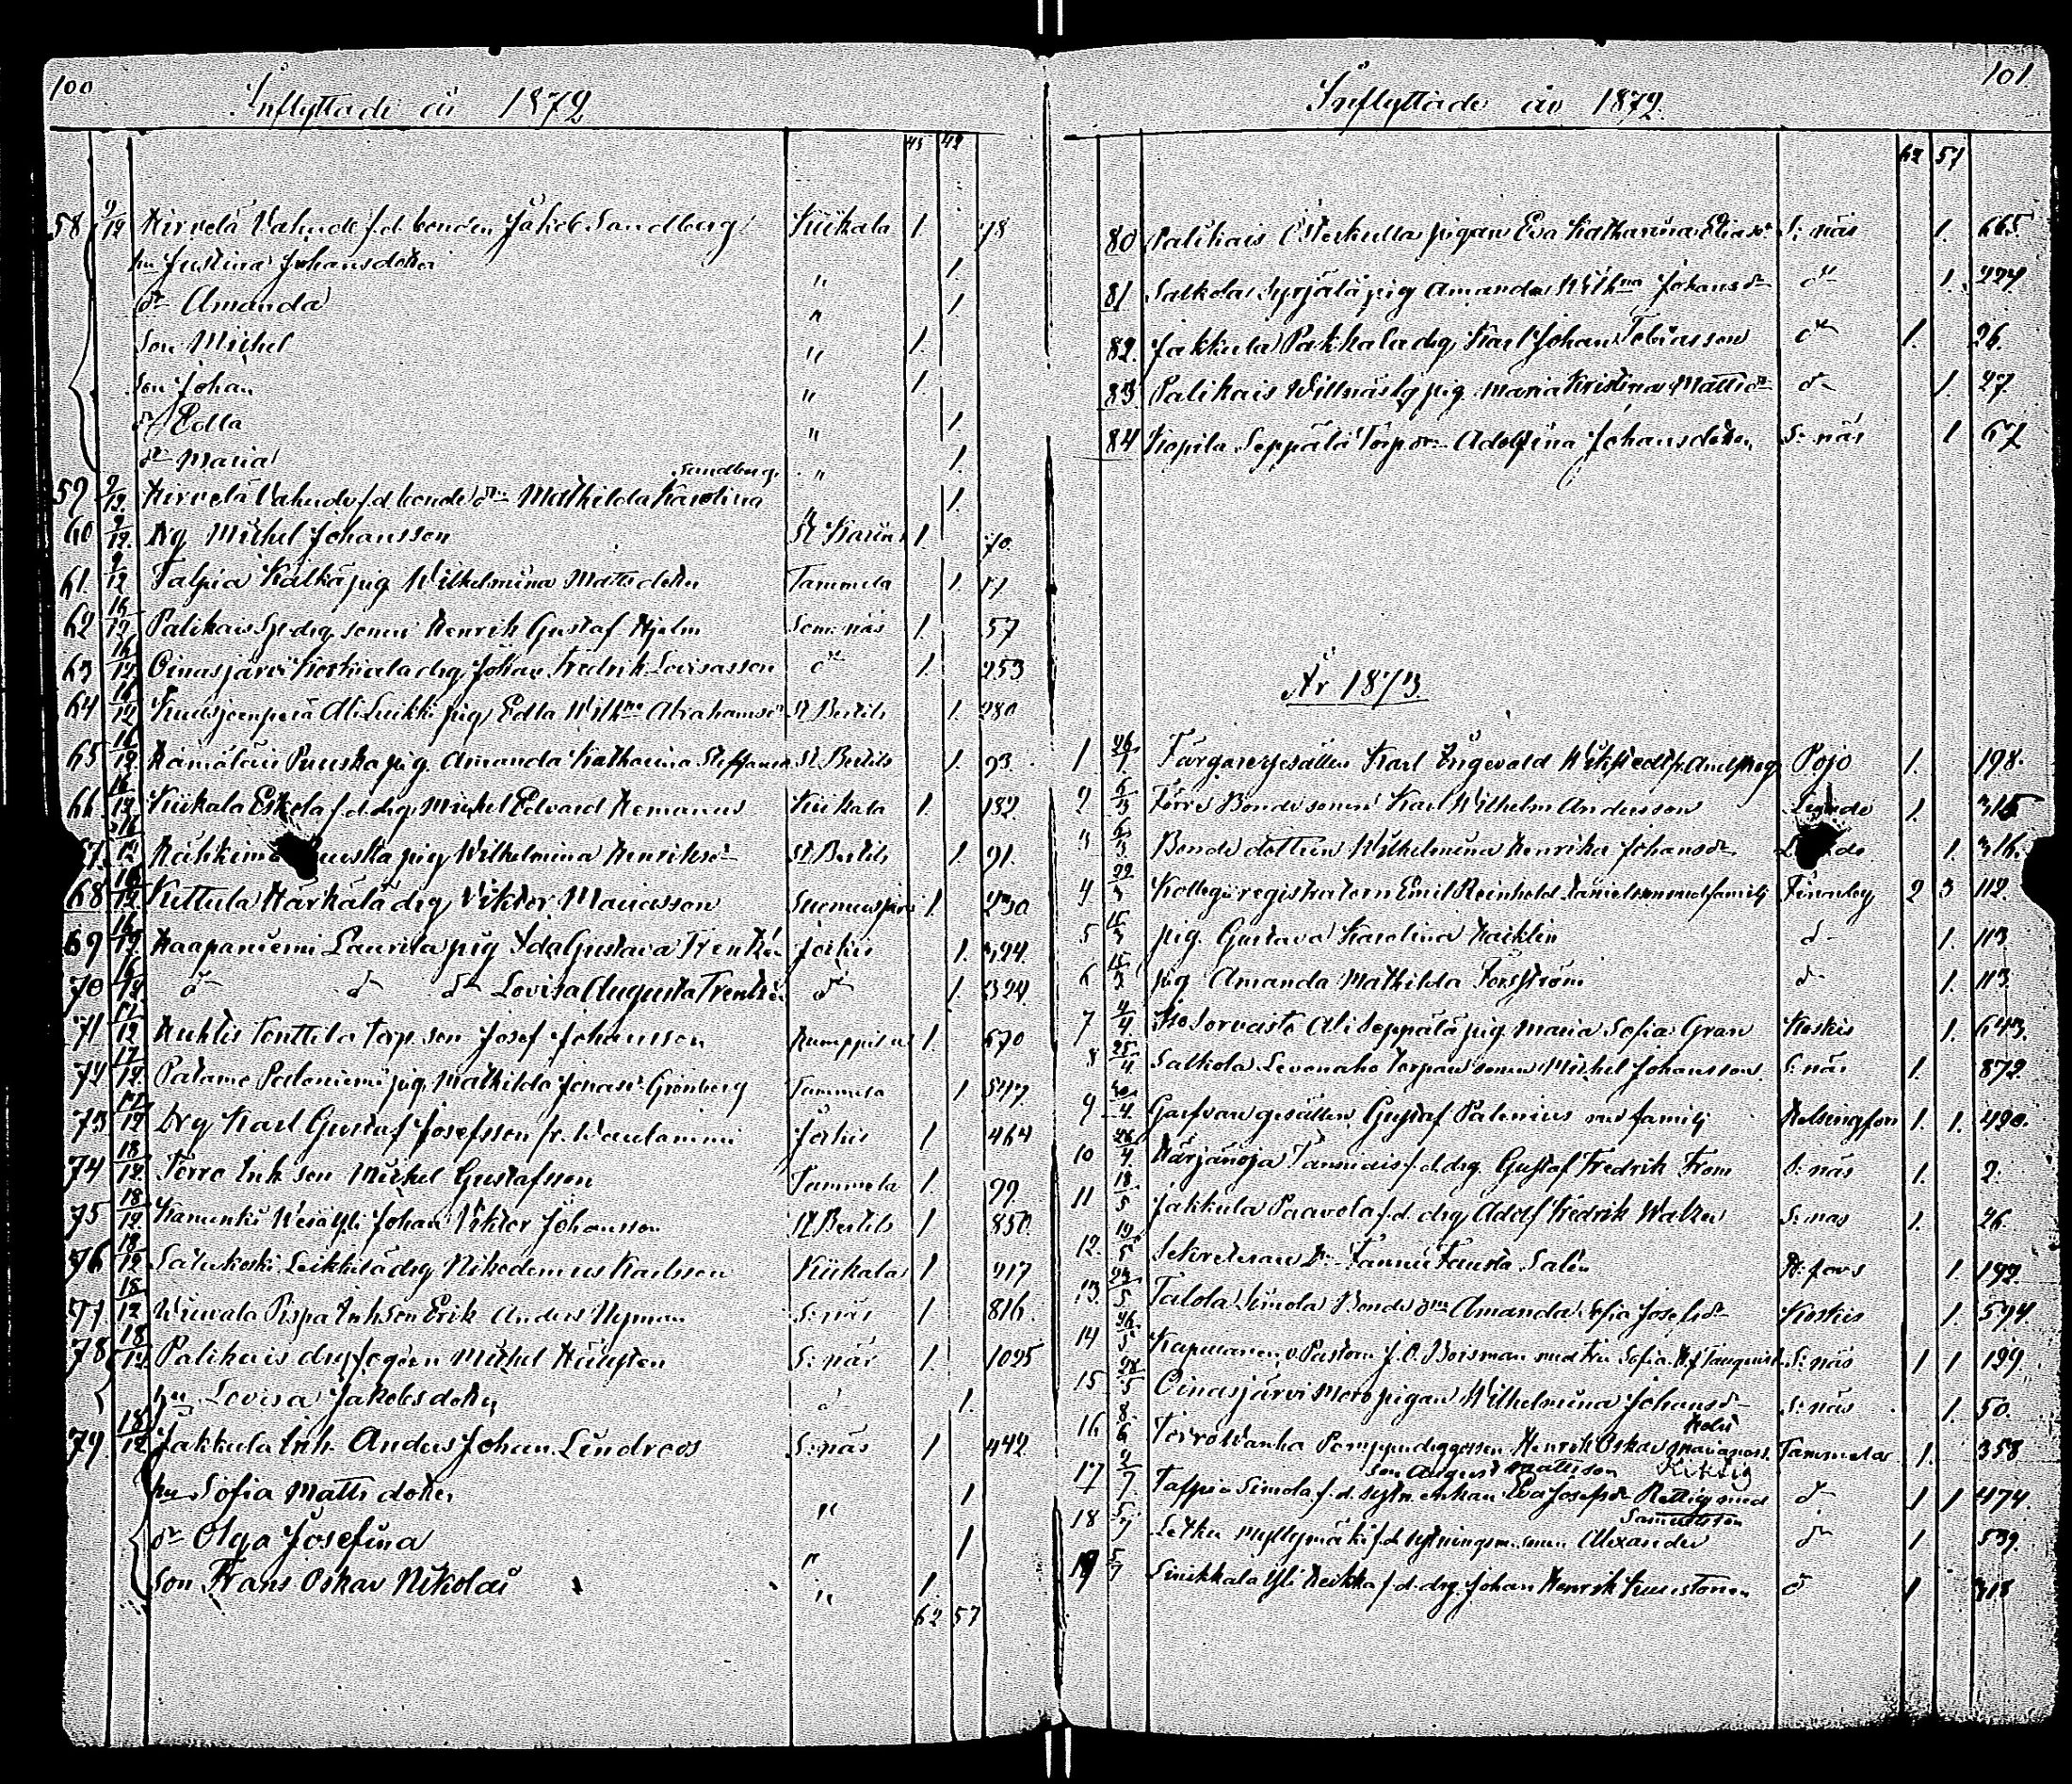 100
Inflyttade år 1872
43 42
58 9/12 Hirvelä Vahude f.d. bonden Jakob Sandberg Kiikala 1 78
hu Justina Johansdotter " 1
dr Amanda " 1
Son Mickel " 1.
Son Johan " 1.
dr Edla " 1
dr Maria " 1.
Sandberg
59 9/12 Hirvelä Vahude f.d. bonde dr Mathilda Karolina " 1.
60 9/12 Dg Mickel Johansson St Karins 1. 70.
61. 9/12 Talpia Kälkä pig Wilhelmina Mattsdotter Tammela 1. 17
62 16/12 Palikais drg. sonen Henrik Gustaf Hjelm Som: näs 1. 57
63 16/12 Oinasjärvi drg Johan Fredrik Lovisasson do 1. 253
64 16/12 Kuusjoenperä Ali Luikki pig Edla Wilhna Abrahamsdr St Bertils 1. 280
65 16/12 Puuska pig. Amanda Katharina St Bertils 1 93.
66. 16/12 Kiikala Eskola f.d. drg. Mickel Edvard Homanus Kiikala 1. 132.
16/12 pig Wilhelmina Henriksdr St Bertils 1. 91.
68 16/12 Kittula Härkälä drg Viktor Mauriasson 1. 230
69 16/12 Haapaniemi Laurila pig Ida Gustava Trentzén Jockis 1. 324.
70 16/12 do do dr Lovisa Augusta Trentzén do 1. 324.
71 17/12 Kuhtis Tonttila torp. son Josef Johansson Humppila 1. 670
72 17/12 Patamo Pataniemi pig. Mathilda Jonasdr Grönberg Tammela 1 547.
73 17/12 Drg Karl Gustaf Josefsson fr. Jockis 1 464
74 18/12 Torro Inh son Mickel Gustafsson Tammela 1. 99.
75 18/12 Johan Viktor Johansson St Bertils 1 850.
76 18/12 Salukoski Leikkilä drg Nikodemus Karlsson Kiikala 1 217
77 18/12 Viuvala Pispa Inh son Erik Anders Nyman S: näs 1 816.
78 18/12 Palikais Mickel S: näs 1. 1025
hu Lovisa Jakobsdotter d 1.
79. 18/12 Jakkula Inh. Anders Johan Lindroos S: näs 1 442
hu Sofia Matts dotter " 1
dr Olga Josefina " 1
Son Frans Oskar Nikolai " 1
62 57
101.
Inflyttade år 1872.
62 57
80 Palikais Österkulla pigan Eva Katharina Eliasdr S: näs 1. 665.
81 Salkola Syrjälä pig Amanda Wilhna Johansdr do 1. 227
82. Jakkula Pakkala drg Karl Johan Tobiasson do 1. 26.
83. Palikais Willnäsby pig. Maria Kristina Mattsdr do 1. 27.
84 Kopila Seppälä Torp dr Adolfina Johansdotter S: näs 1 67
År 1873.
1 26/1 Färgaregesällen Karl Engevald Pojo 1. 198.
2 6/3 Torro Bonde sonen Karl Wilhelm Andersson 1. 315
3 6/3 Bonde dottren Wilhelmina Henrika Johansdr 1. 316.
4 22/3 Kollegii registratorn Emil Reinhold Danielson med familj Finnby 2 3 112.
5 15/3 pig. Gustava Karolina Häcklin d 1. 113
6 15/3 pig Amanda Mathilda Forsström d 1. 113.
7 4/4 Sorvasto Ali Seppälä pig. Maria Sofia Gran Koskis 1. 643.
8 25/4 Salkola Levonaho Torpare sonen Mickel Johansson S: näs 1. 872.
9 30/4 Garfvare gesällen Gustaf Palenius med familj Helsingfors 1. 1. 490.
10 26/4 Härjänoja Tammiais f.d. drg. Gustaf Fredrik From S: näs 1. 2.
11 18/5 Jakkula Paavola f.d. drg Adolf Fredrik Walzer S: näs 1. 26.
12. 19/5 Sekreteraren Dr Fanni Fausta Salin H:fors 1. 192.
13. 23/5 Talola Simola Bonde dr Amanda Sofia Josefsdr Koskis 1. 594.
14 26/5 v. Pastorn J. O. Borsman med Fru Sofia S: näs 1 1 199.
15 28/5 Oinasjärvi Moro pigan Wilhelmina Johansdr S: näs 1. 50.
16 8/6 Torro Wanha Henrik Oskar Tammela 1. 358
Son August Mattsson
17 2/7 Talpia Simola f.d. Eva Josefsdr Rettig med d 1 1 474.
Samuelsson
18 5/7 Letku Myllymäki f.d. sytningsm. sonen Alexander d 1 539.
19 5/7 Sinikkala Yli Heikka f.d. drg. Johan Henrik d 1 313